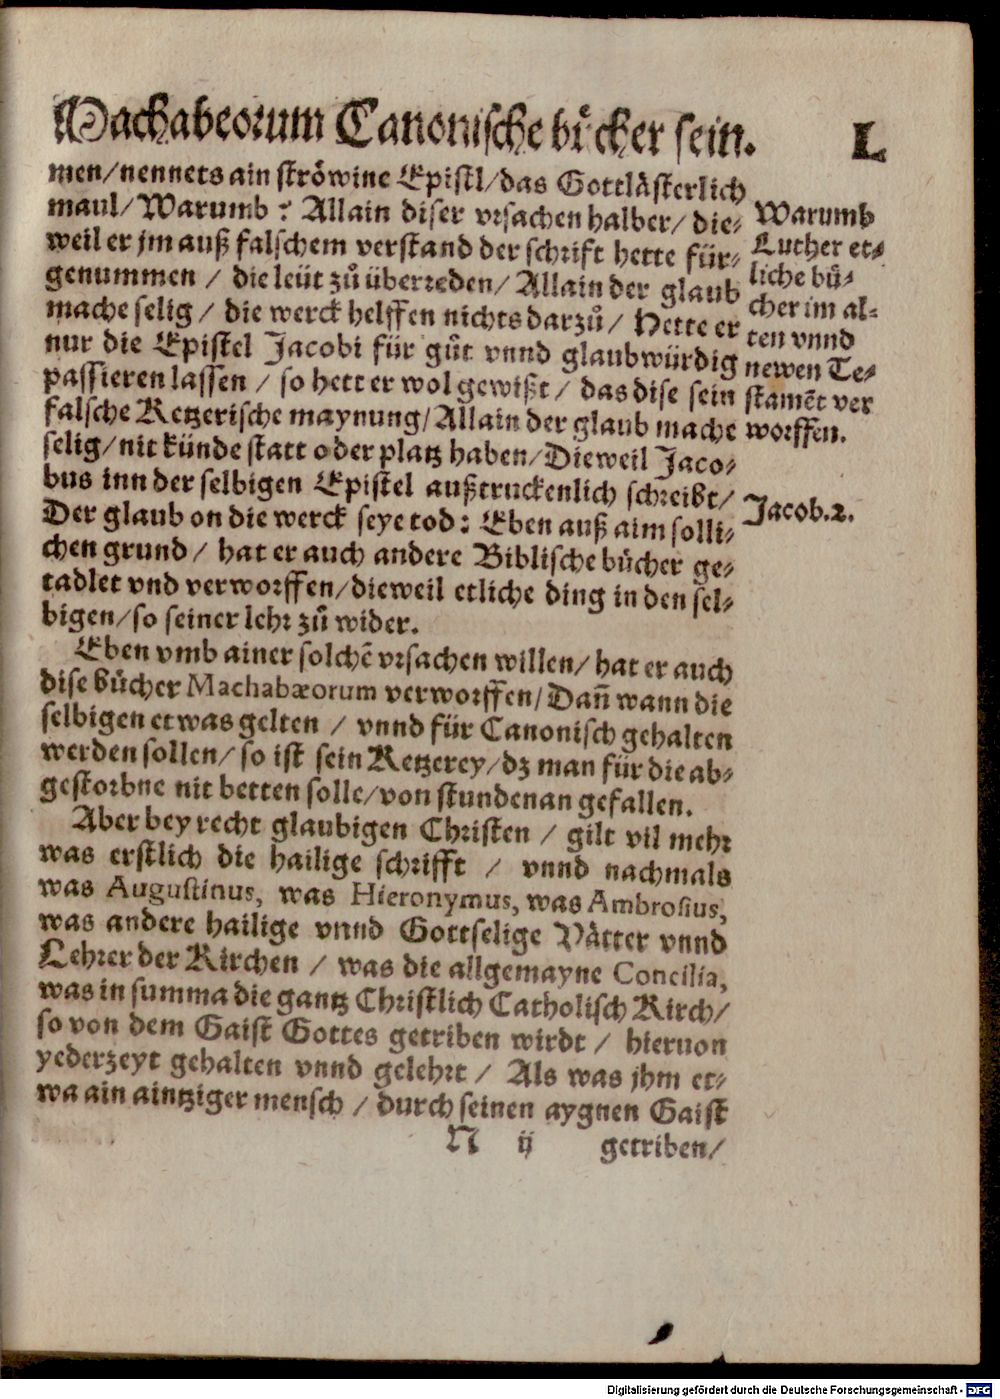 Machabeorum Canonische bücher sein. L
men/nennets ain ströwine Epistl/das Gottlästerlich
maul/Warumb? Allain diser vrsachen halber/ die-
weil er jm auß falschem verstand der schrift hette für-
genummen / die leüt zů überreden/ Allain der glaub
mache selig / die werck helffen nichts darzů/ Hette er
nur die Epistel Jacobi für gůt vnnd glaubwürdig
passieren lassen / so hett er wol gewißt / das dise sein
falsche Ketzerische maynung/Allain der glaub mache
selig/nit künde statt oder platz haben/Dieweil Jaco-
bus inn der selbigen Epistel außtruckenlich schreibt/
Der glaub on die werck seye tod: Eben auß aim solli-
chen grund / hat er auch andere Biblische bücher ge-
tadlet vnd verworffen/dieweil etliche ding in den sel-
bigen/so seiner lehr zů wider.
Eben vmb ainer solchē vrsachen willen/ hat er auch
dise bücher Machabæorum verworffen/Dañ wann die
selbigen etwas gelten / vnnd für Canonisch gehalten
werden sollen/ so ist sein Ketzerey/dz man für die ab-
gestorbne nit betten solle/von stunden an gefallen.
Aber bey recht glaubigen Christen / gilt vil mehr
was erstlich die hailige schrifft / vnnd nachmals
was Augustinus, was Hieronymus, was Ambrosius,
was andere hailige vnnd Gottselige Vätter vnnd
Lehrer der Kirchen / was die allgemayne Concilia,
was in summa die gantz Christlich Catholisch Kirch/
so von dem Gaist Gottes getriben wirdt / hieruon
yederzeyt gehalten vnnd gelehrt / Als was jhm et-
wa ain aintziger mensch / durch seinen aygnen Gaist
N ij getriben/
Warumb
Luther et-
liche bü-
cher im al-
ten vnnd
newen Te-
stamēt ver
worffen.
Jacob.2.
Digitalisierung gefördert durch die Deutsche Forschungsgemeinschaft - DFG